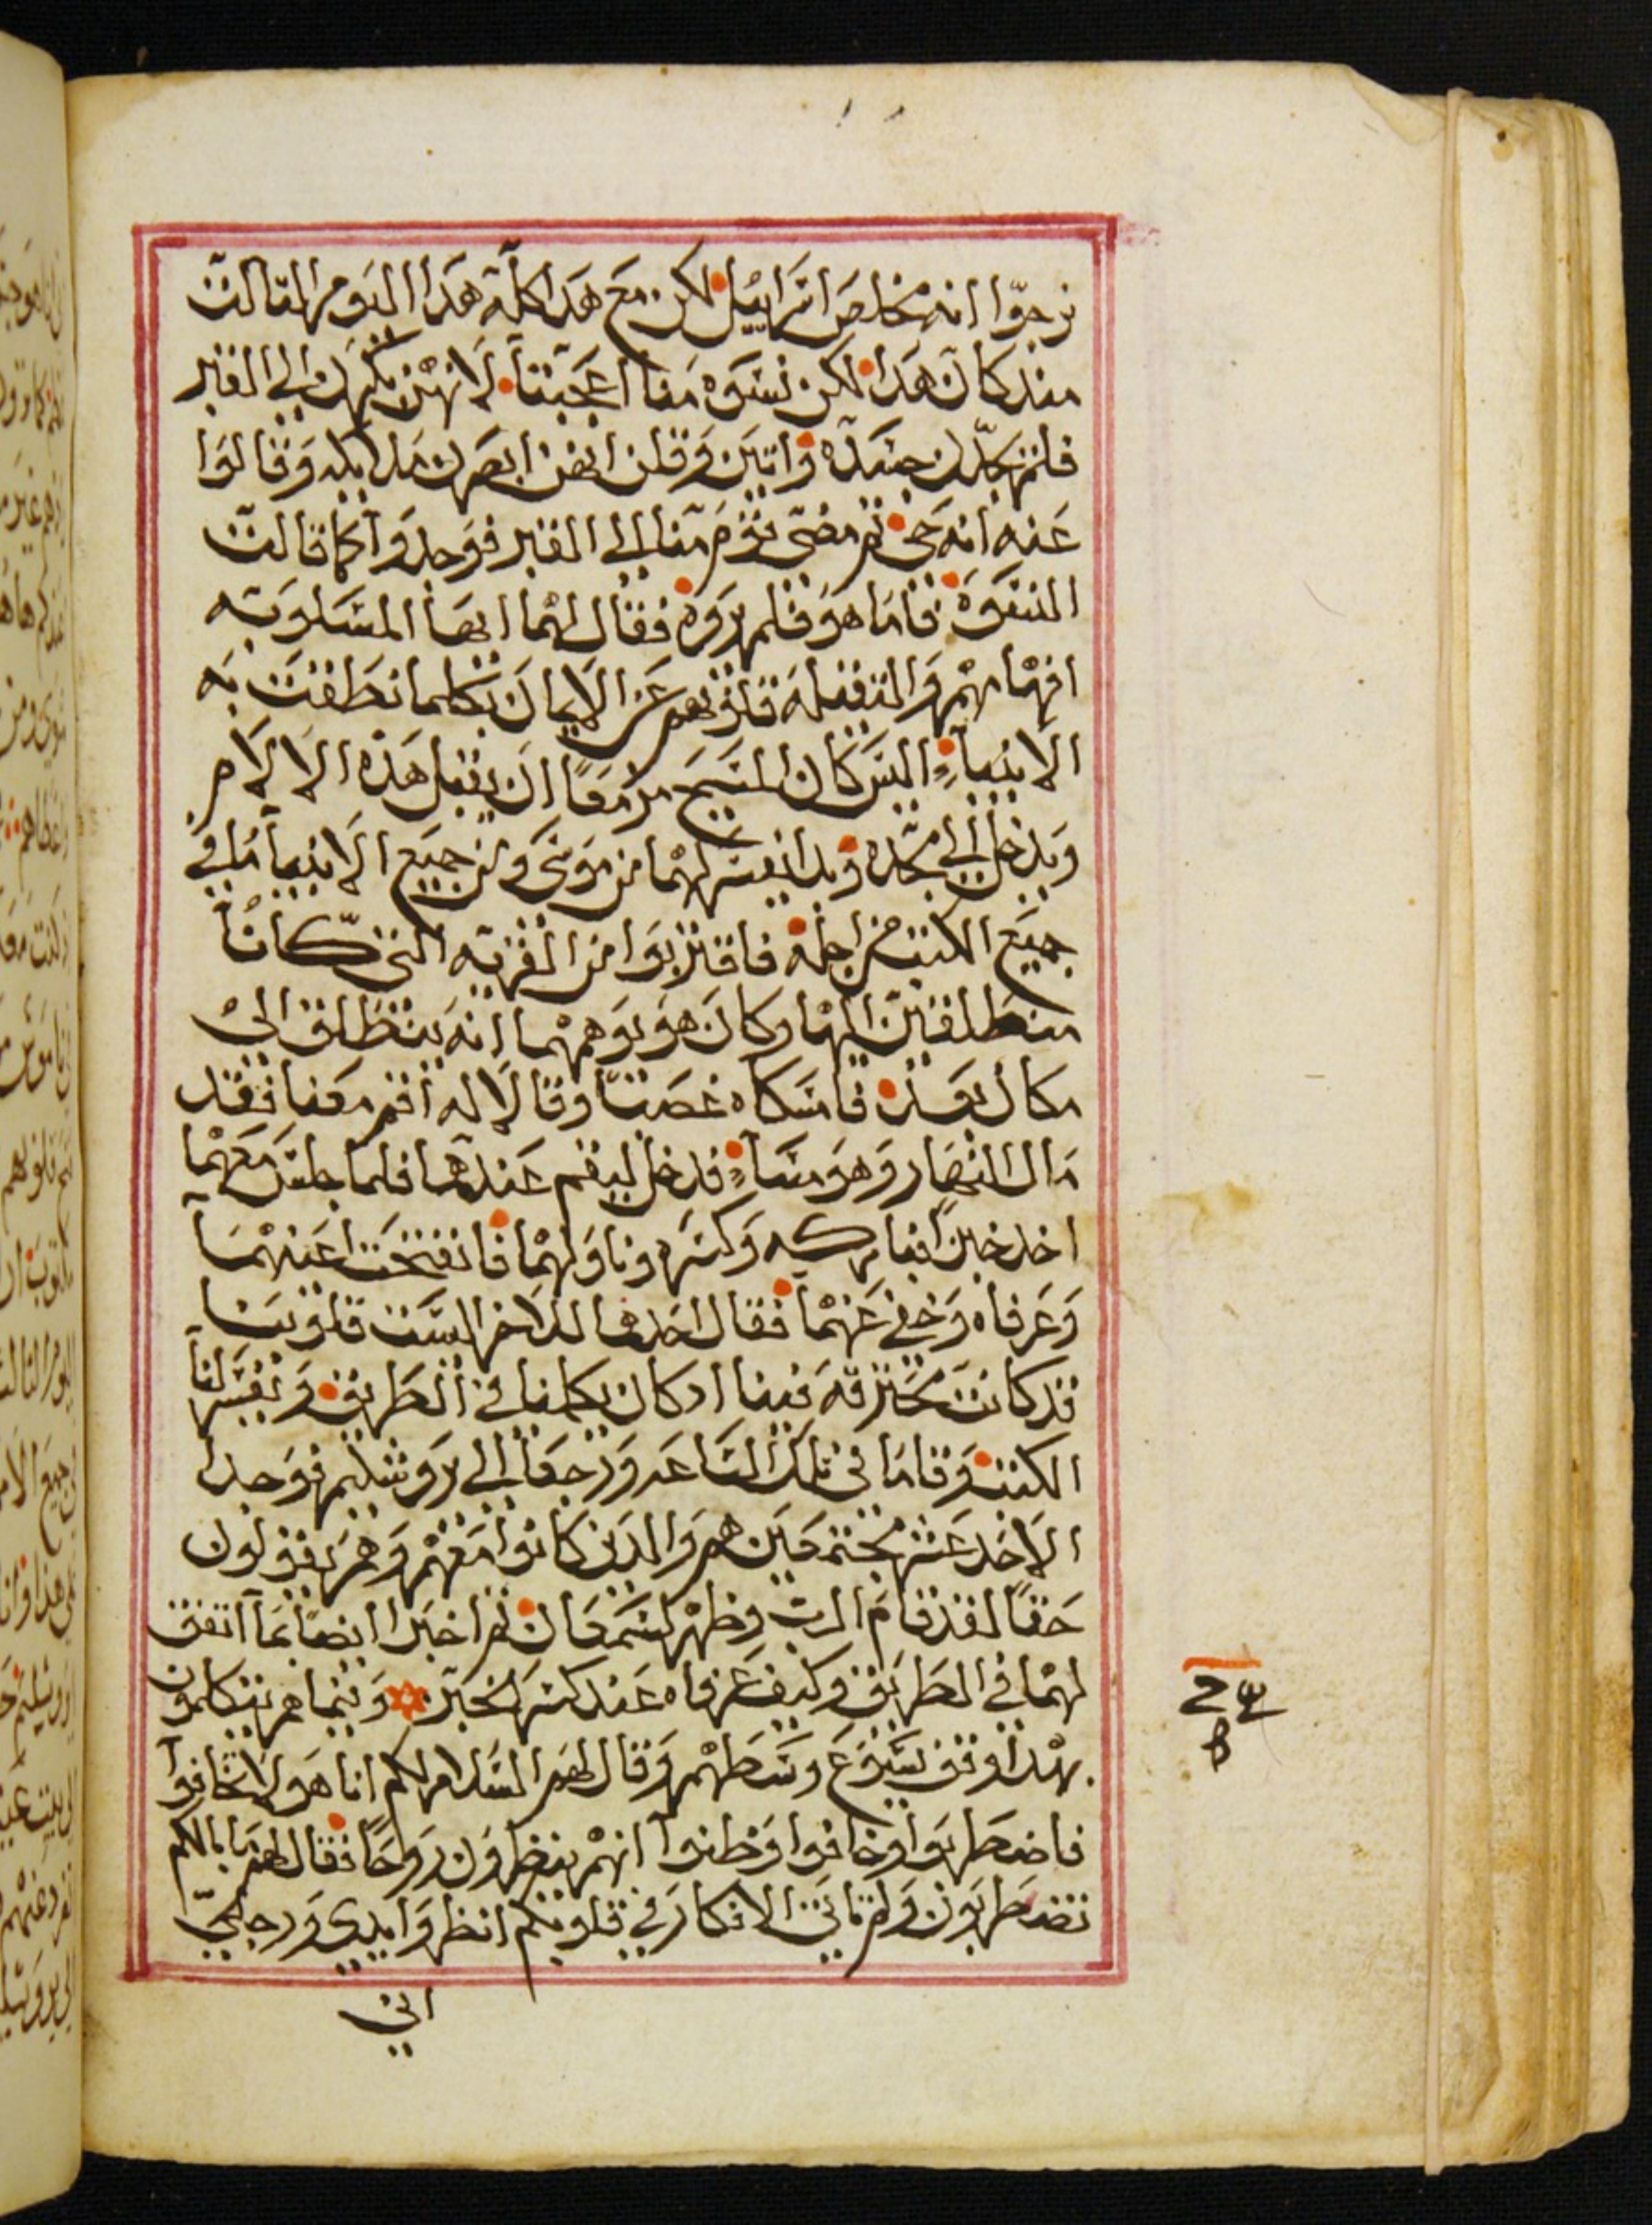 نرجوا انه مخلص اسراييل لكن مع هدا كله هدا اليوم الثالث
مند كان هدا لكن نسوه منا اعجبننا لانهن بكرن الي القبر
فلم يجدن جسده واتين وقلن انهن ابصرن ملايكه وقالوا
عنه انه حي ثم مضي قوم منا الي القبر فوجدوا كما قالت
النسوه فاما هو فلم يروه فقال لهما ايها المسلوبه
افهامهم والثقيله قلوبهم عن الايمان بكلما نطقت به
الانبياء اليس كان المسيح مزمعا ان يقبل هذه الالام
ويدخل الي مجده وبدا يفسر لهما من موسي ومن جميع الانبيا ما في
جميع الكتب من اجله فاقتربوا من القريه التي كانا
منطلقين اليها وكان هو يوهمهما انه ينطلق الي
مكان بعيد فامسكاه غصبا وقالا له اقم معنا فقد
مال النهار وهو مساء فدخل ليقم عندهما فلما جلس معهما
اخد خبزا فباركه وكسره وناولهما فانفتحت اعينهما
وعرفاه وخفي عنهما فقال احدهما للاخر اليست قلوبنا
قد كانت محترقه فينا اد كان يكلمنا في الطريق ويفسر لنا
الكتب وقاما في تلك الساعه ورجعا الي يروشليم فوجدا
الاحد عشر مجتمعين هم والدين كانوا معهم وهم يقولون
حقا لقد قام الرب وظهر لسمعان ثم اخبرا ايضا بما اتفق
لهما في الطريق وكيف عرفاه عند كسر الخبز وبينما هم يتكلمون
بهدا وقف يسوع وسطهم وقال لهم السلام لكم انا هو لا تخافوا
فاضطربوا وخافوا وظنوا انهم ينظرون روحا فقال لهم ما بالكم
تضطربون ولم تاتي الافكار في قلوبكم انظروا يدي ورجلي
اني